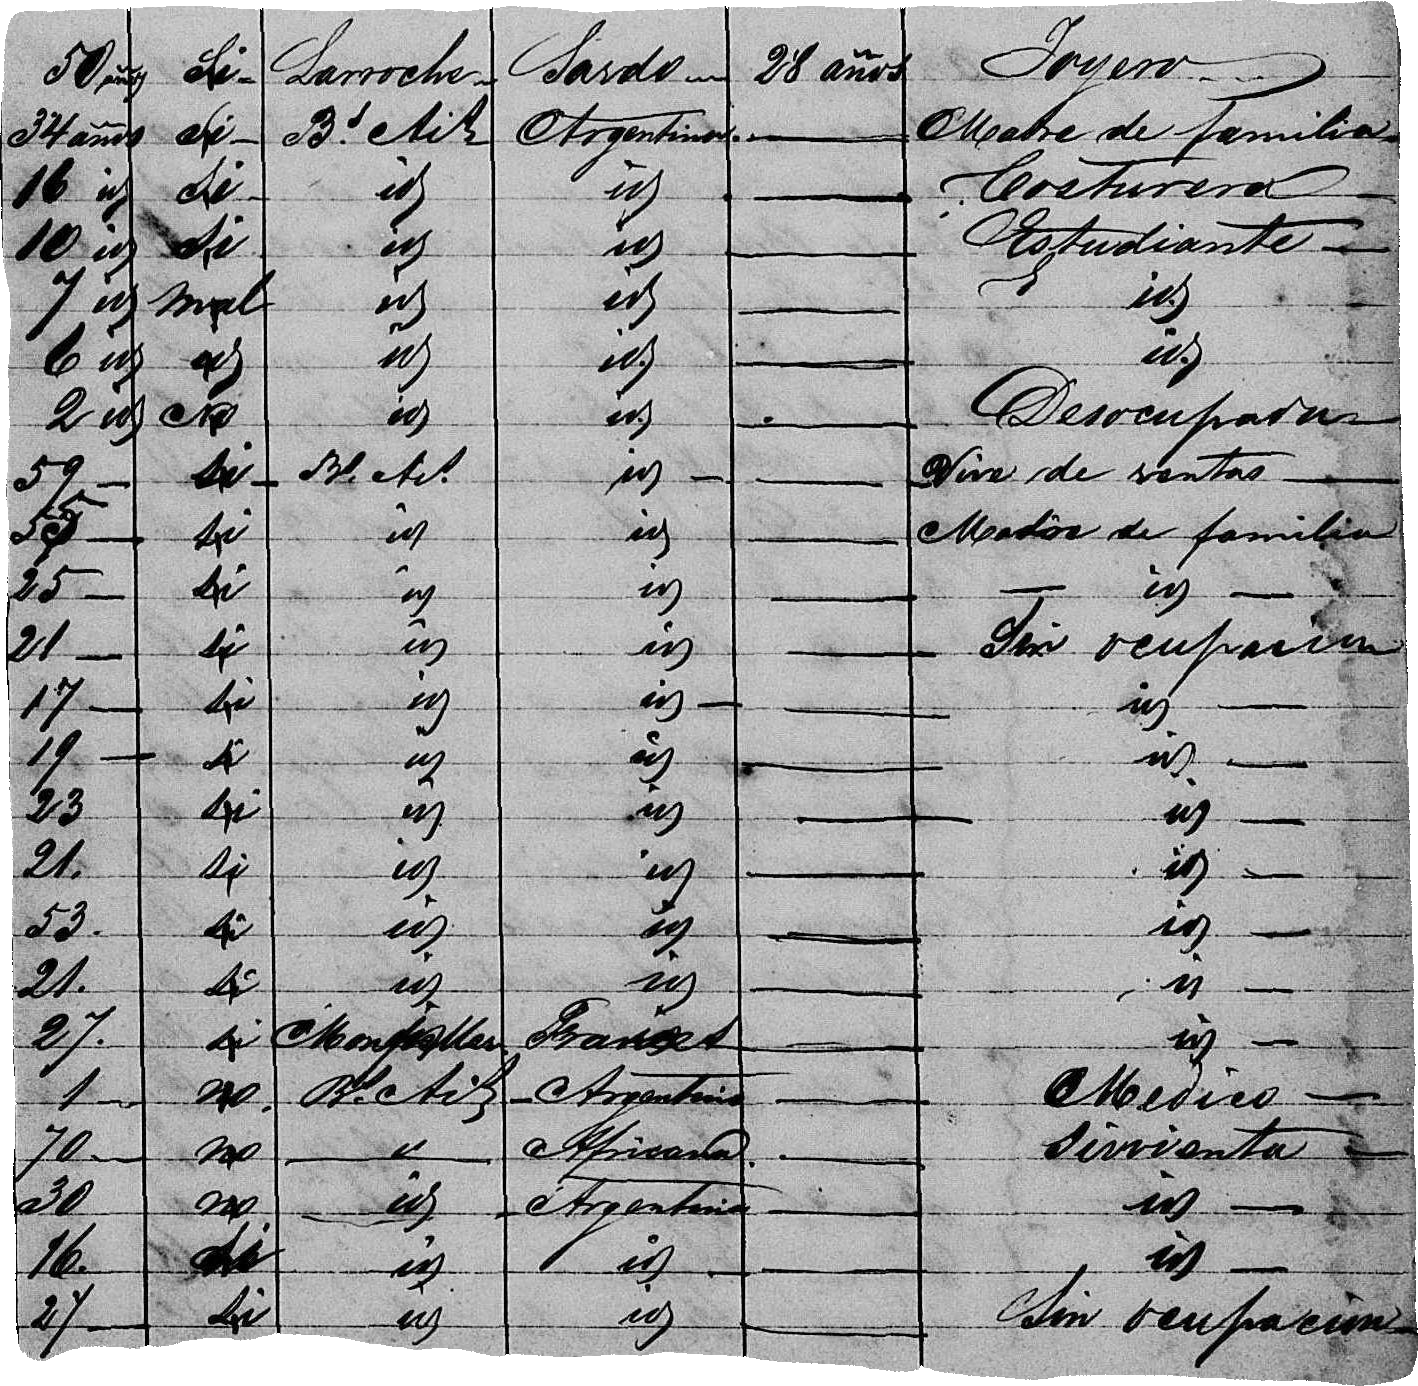 50 años Si Larroche Sardo 28 años Joyero
34 años Si Bs. Ais Argentina Madre de familia
16 id Si id id Costurera
10 id Si id id Estudiante
7 id mal id id id
6 id id id id id
2 id No id id Desocupada
59 si Bs. As. id Vive de rentas
55 si id id Madre de familia
25 si id id id
21 si id id Sin ocupacion
17 si id id id
19 si id id id
23 si id id id
21. si id id id
53. si id id id
21. si id id id
27. si Frances id
1 no. Bs. Ais Argentino Medico
70 no " Africana. Sirvienta
30 no id Argentina id
16. Si id id id
27 si id id Sin ocupacion